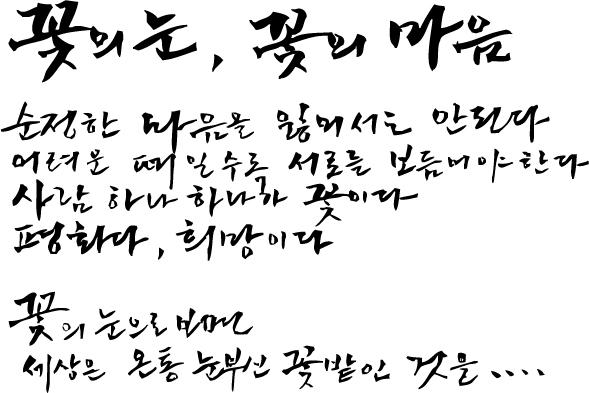 꽃의 눈, 꽃의 마음
순정한 마음을 잃어서는 안된다
어려운 때일수록 서로를 보듬어야 한다
사람 하나 하나가 꽃이다
평화다, 희망이다
꽃의 눈으로 보면
세상은 온통 눈부신 꽃밭인 것을....